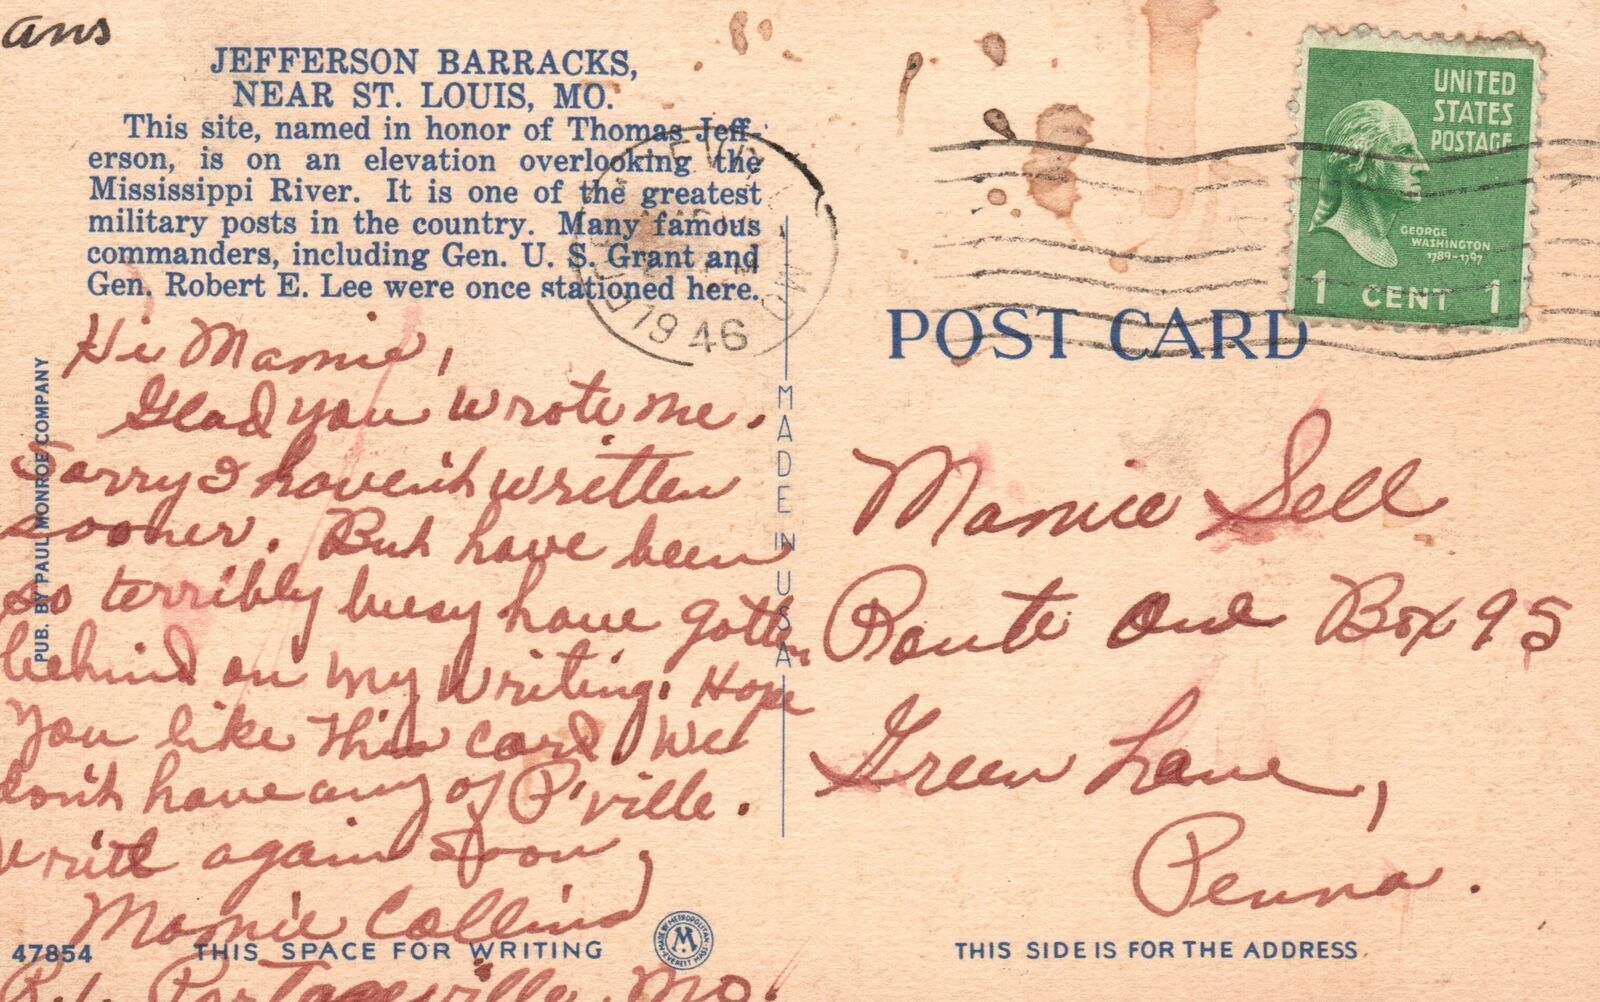 ans
JEFFERSON BARRACKS,
NEAR ST. LOUIS, MO.
This site, named in honor of Thomas Jeff-
erson, is on an elevation overlooking the
Mississippi River. It is one of the greatest
military posts in the country. Many famous
commanders, including Gen. U. S. Grant and
Gen. Robert E. Lee were once stationed here.
Hi Mamie,
Glad you wrote me.
Sorry I haven't written
sooner. But have been
so terribly busy have gotten
behind on my writing. Hope
you like this card. We
don't have any of P'ville.
write again soon,
Mamie Collins
R.1. Portageville, Mo.
47854
THIS SPACE FOR WRITING
PUB. BY PAUL MONROE COMPANY
MADE IN U S A
MADE BY METROPOLITAN
M
EVERETT MASS.
1946
MO
UNITED
STATES
POSTAGE
GEORGE
WASHINGTON
1789-1797
1 CENT 1
POST CARD
Mamie Sell
Route One Box 95
Green Lane,
Penna.
THIS SIDE IS FOR THE ADDRESS